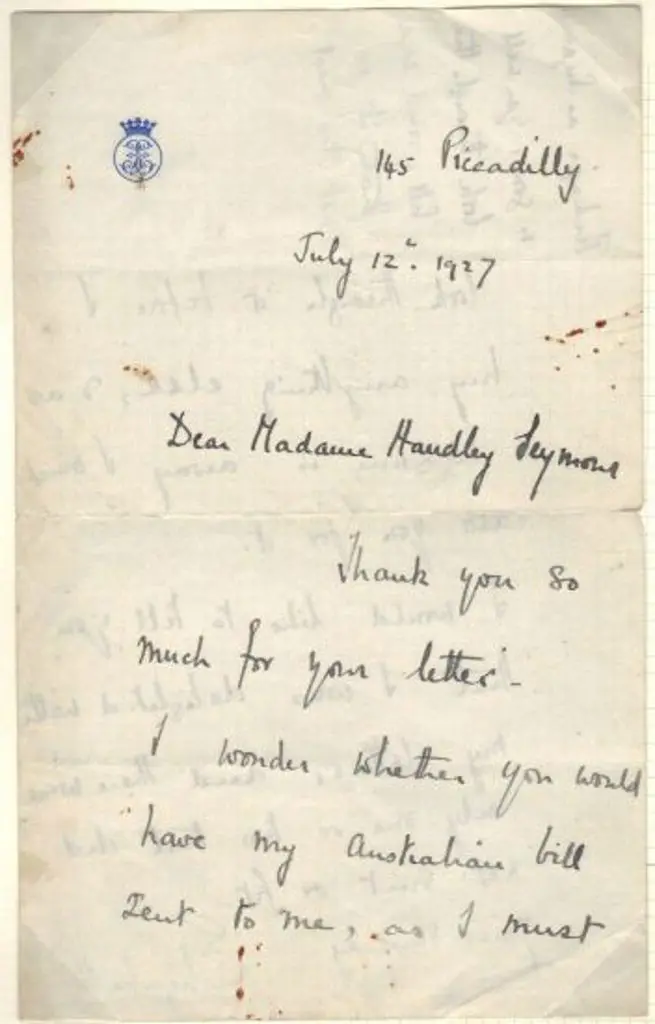 145 Piccadilly
July 12th. 1927
Dear Madame Handley Seymour
Thank you so
much for your letter -
I wonder whether you would
have my Australian bill
sent to me, as I must